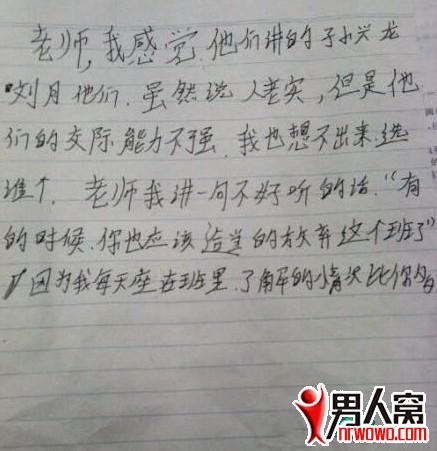 老师,我感觉.他们讲的于小兴龙
刘月他们.虽然说人老实,但是他
们的交际能力不强.我也想不出来.选
谁个.老师我讲一句不好听的话."有
的时候.你也应该洽当的放弃这个班了"
因为我每天座在班里.了解的情况比你
男人窝
nrwowo.com